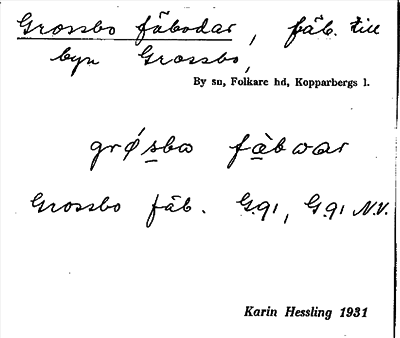 Grossbo fäbodar, fäb. till
byn Grossbo,
By sn, Folkare hd, Kopparbergs l.
grǿsbω fàbωar
Grossbo fäb. G.91, G.91 N.V.
Karin Hessling 1931